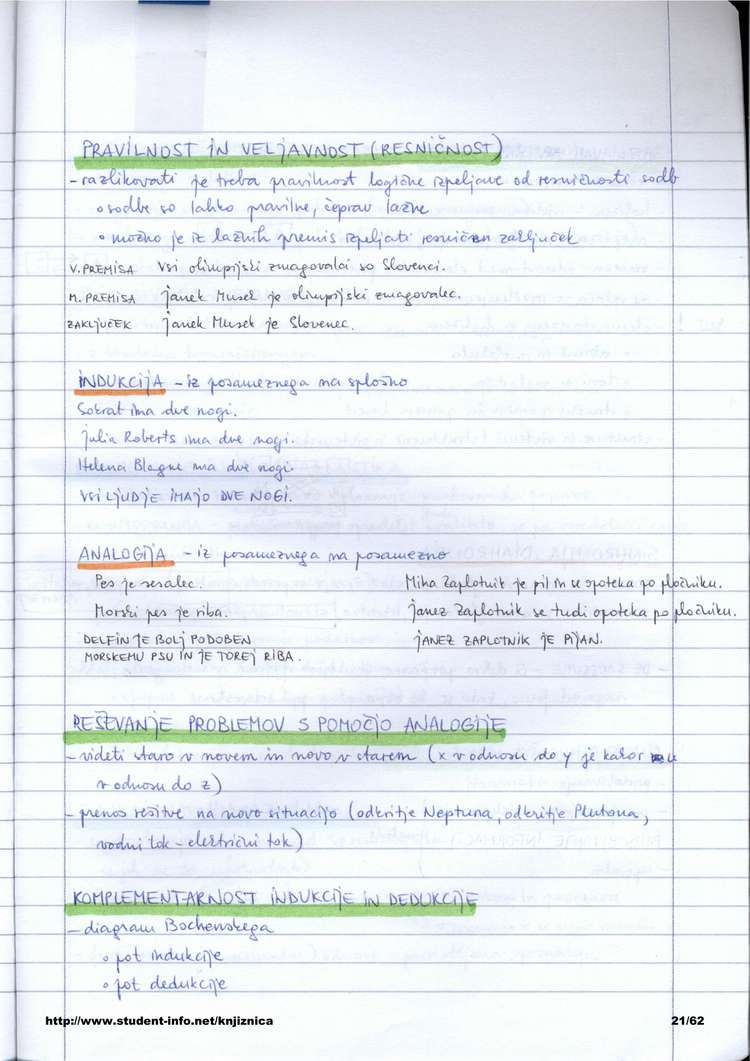 PRAVILNOST IN VELJAVNOST (RESNIČNOST)
- razlikovati je treba pravilnost logične izpeljave od resničnosti sodb
• sodbe so lahko pravilne, čeprav lažne
• možno je iz lažnih premis izpeljati resničen zaključek
V. PREMISA Vsi olimpijski zmagovalci so Slovenci.
M. PREMISA Janek Musek je olimpijski zmagovalec.
ZAKLJUČEK Janek Musek je Slovenec.
INDUKCIJA - iz posameznega na splošno
Sokrat ima dve nogi.
Julia Roberts ima dve nogi.
Helena Blagne ima dve nogi.
VSI LJUDJE IMAJO DVE NOGI.
ANALOGIJA - iz posameznega na posamezno
Pes je sesalec. Miha Zaplotnik je pil in se opoteka po pločniku.
Morski pes je riba. Janez Zaplotnik se tudi opoteka po pločniku.
DELFIN JE BOLJ PODOBEN JANEZ ZAPLOTNIK JE PIJAN.
MORSKEMU PSU IN JE TOREJ RIBA.
REŠEVANJE PROBLEMOV S POMOČJO ANALOGIJE
- videti staro v novem in novo v starem (x v odnosu do y je kakor u
v odnosu do z)
- prenos rešitve na novo situacijo (odkritje Neptuna, odkritje Plutona,
vodni tok - električni tok)
KOMPLEMENTARNOST INDUKCIJE IN DEDUKCIJE
- diagram Bochenskega
• pot indukcije
• pot dedukcije
http://www.student-info.net/knjiznica 21/62